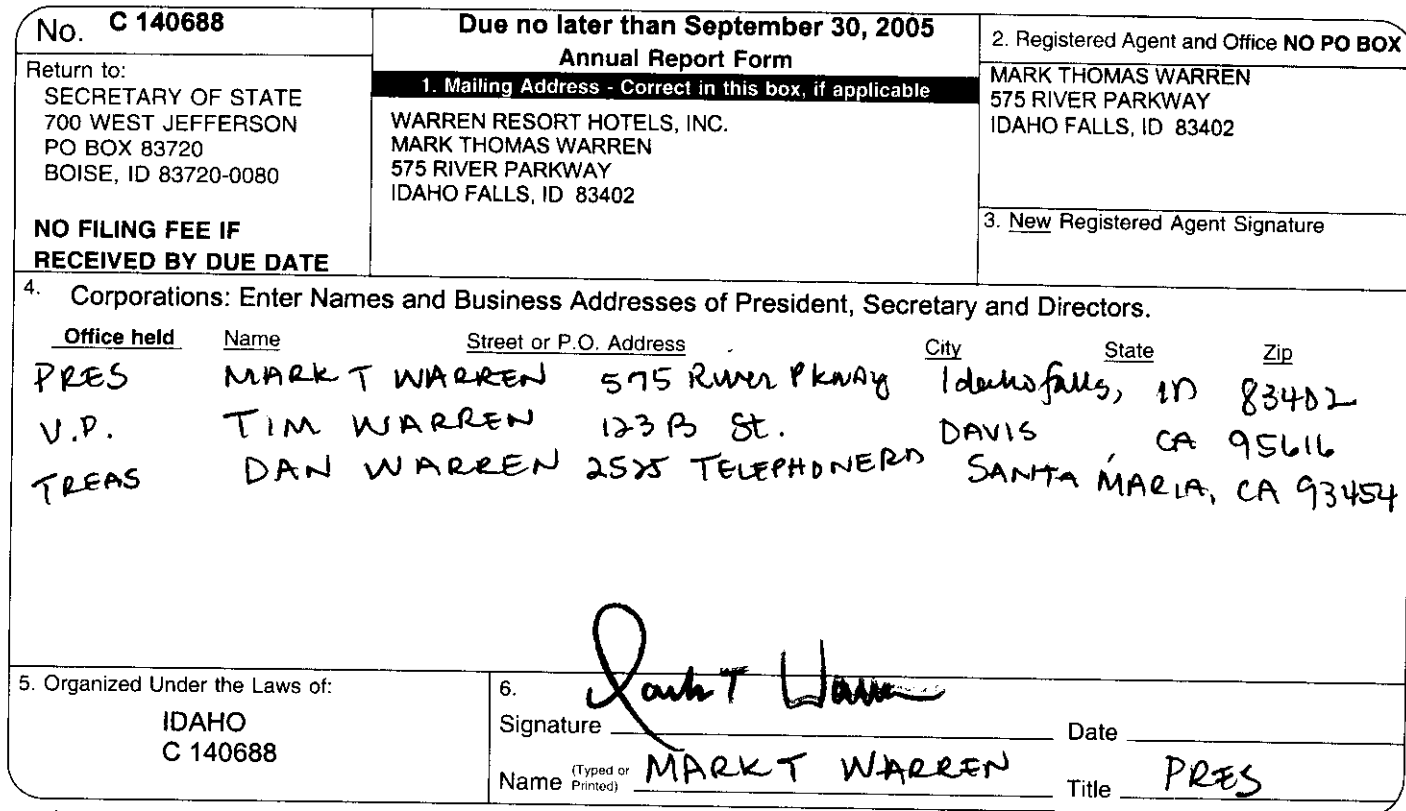 No. C 140688
Return to:
SECRETARY OF STATE
700 WEST JEFFERSON
PO BOX 83720
BOISE, ID 83720-0080
NO FILING FEE IF
RECEIVED BY DUE DATE
Due no later than September 30, 2005
Annual Report Form
1. Mailing Address - Correct in this box, if applicable
WARREN RESORT HOTELS, INC.
MARK THOMAS WARREN
575 RIVER PARKWAY
IDAHO FALLS, ID 83402
2. Registered Agent and Office NO PO BOX
MARK THOMAS WARREN
575 RIVER PARKWAY
IDAHO FALLS, ID 83402
3. New Registered Agent Signature
4. Corporations: Enter Names and Business Addresses of President, Secretary and Directors.
Office held Name Street or P.O. Address City State Zip
PRES MARK T WARREN 575 River Pkway Idaho falls, ID 83402
V.P. TIM WARREN 123 B St. DAVIS, CA 95616
TREAS DAN WARREN 2525 TELEPHONE RD SANTA MARIA, CA 93454
5. Organized Under the Laws of:
IDAHO
C 140688
6.
Signature Mark T Warren Date
Name (Typed or Printed) MARK T WARREN Title PRES